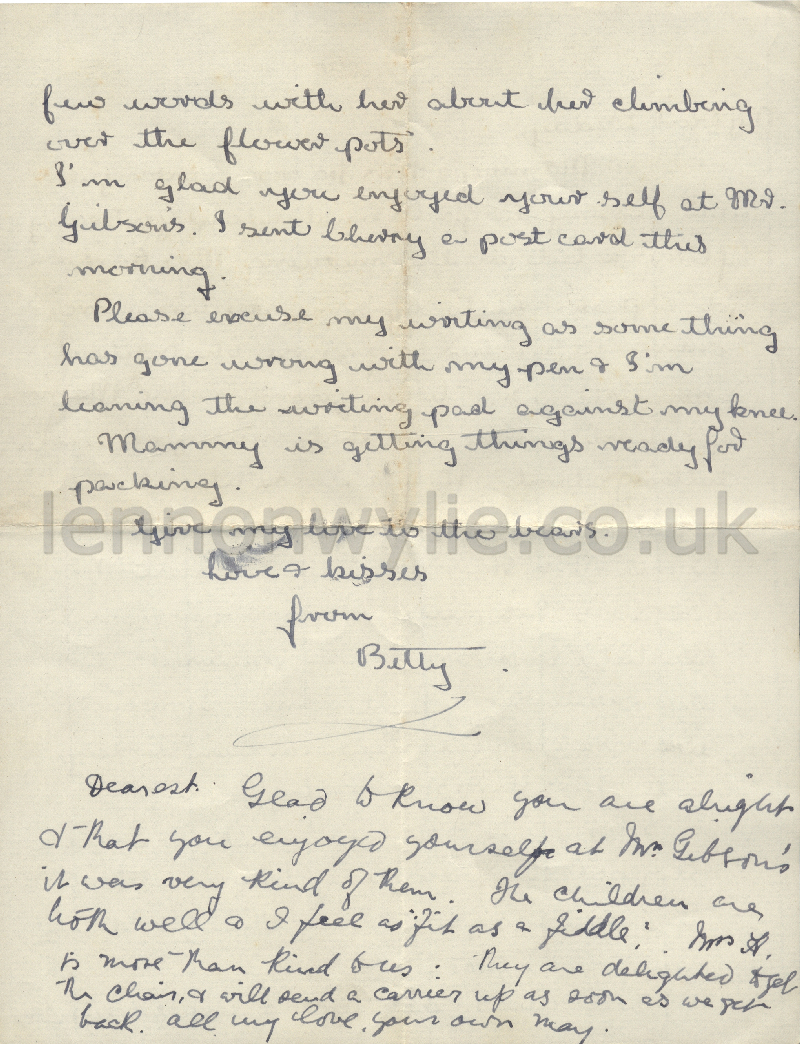 few words with her about her climbing
over the flower pots.
I'm glad you enjoyed your self at Mr.
Gibson's. I sent Cherry a post card this
morning.
Please excuse my writing as some thing
has gone wrong with my pen & I'm
leaning the writing pad against my knee.
Mammy is getting things ready for
packing.
lennonwylie.co.uk
Give my love to the bears.
Love & kisses
from
Betty.
Dearest. Glad to know you are alright
& that you enjoyed yourself at Mr. Gibson's
it was very kind of them. The children are
both well & I feel as "fit as a fiddle". Mrs H.
is more than kind to us. They are delighted to get
the chair, & will send a carrier up as soon as we get
back. all my love, your own May.